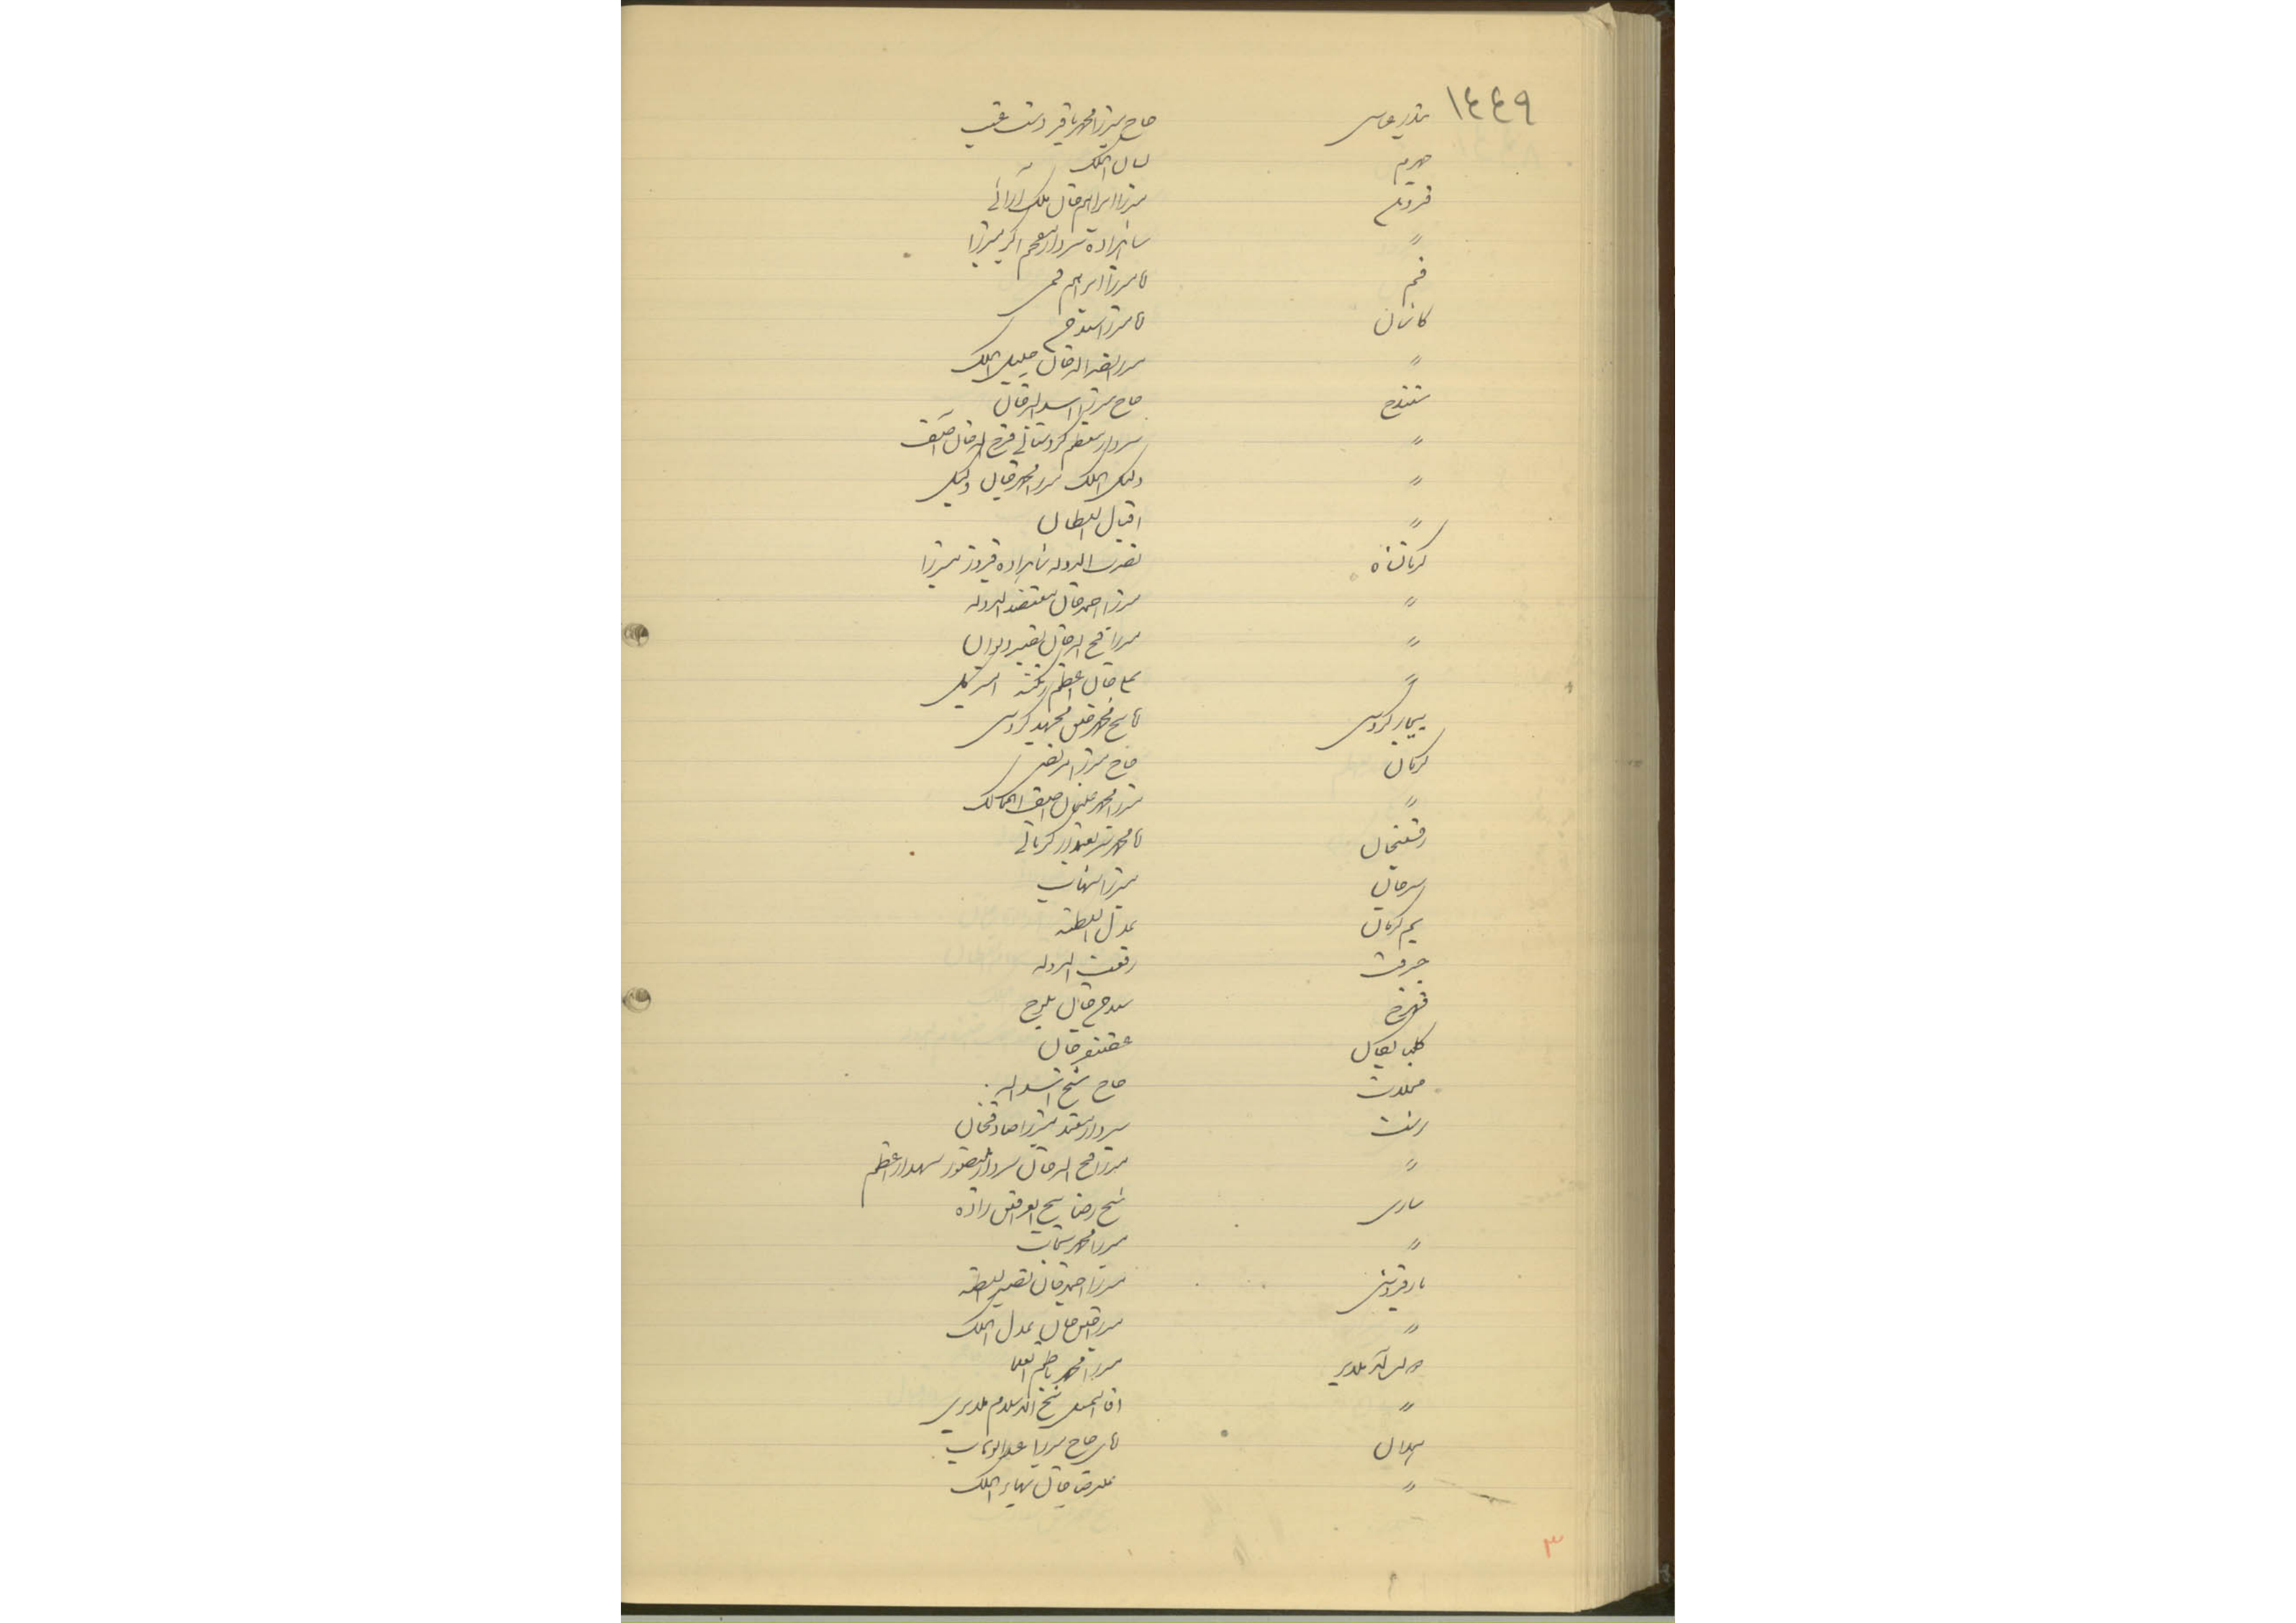 ١٤٤٩
بندر عباس حاج میرزا محمد باقر دست غیب
جهرم لسان الملک
قزوین میرزا ابراهیم خان ملک آرائی
" شاهزاده سردار مفخم اکبر میرزا
قم آقا میرزا ابراهیم قمی
کاشان آقا میرزا سید حسن
" میرزا نصرالله خان جلیل الملک
سنندج حاج میرزا اسدالله خان
" سردار معظم کردستانی فرج الله خان آصف
" وکیل الملک میرزا محمد خان وکیل
" اقبال السلطان
کرمانشاه نصرت الدوله شاهزاده فیروز میرزا
" میرزا احمد خان معتضد الدوله
" میرزا فتح الله خان نصیر دیوان
" خان اعظم زنگنه امیر کل
بیجار گروس آقا شیخ محمد حسن مجتهد گروسی
کرمان حاج میرزا مرتضی
" میرزا محمد علیخان اصف الممالک
رفسنجان آقا محمد شریعتمدار کرمانی
سیرجان میرزا شهاب
بم کرمان عدل السلطنه
جیرفت رفعت الدوله
خان بلوچ
گلپایگان غضنفر خان
محلات حاج شیخ اسدالله
رشت سردار معتمد میرزا صادقخان
" میرزا فتح الله خان سردار منصور سپهدار اعظم
ساری شیخ العراقین زاده
" میرزا محمد نجات
بارفروش میرزا احمد خان نصیر السلطنه
" میرزا حسن خان عدل الملک
ملایر میرزا محمد ناظم العلما
" شیخ الاسلام ملایری
همدان آقای حاج میرزا عبدالوهاب
" علیرضا خان بهاء الملک
٣